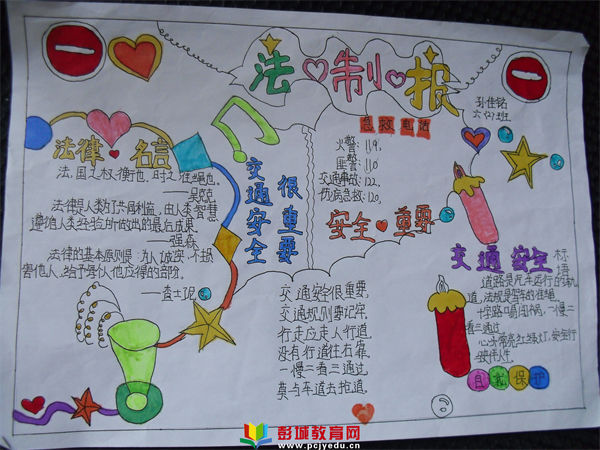 法制报
孙佳铭
六(7)班
急救电话
火警:119,
匪警:110
交通事故:122,
伤病急救:120.
安全重要
法律名言
法,国之权衡也,时之准绳也。
——吴兢
法律是人类的共同利益,由人类智慧
遵循人类经验所做出的最后成果
——强森
法律的基本原则是:为人诚实,不损
害他人,给予每个人他应得的部分。
——查士丁尼
交通安全
很重要
交通安全很重要,
交通规则要记牢,
行走应走人行道,
没有行道往右靠
一慢二看三通过,
莫与车道去抢道.
交通安全
标语
道路是汽车运行的轨
道,法规是驾车的准绳,
十字路口闯祸,一慢二
看三通过
心头常亮红绿灯,安全行
驶伴人生
自救保护
彭城教育网
www.pcjyedu.cn